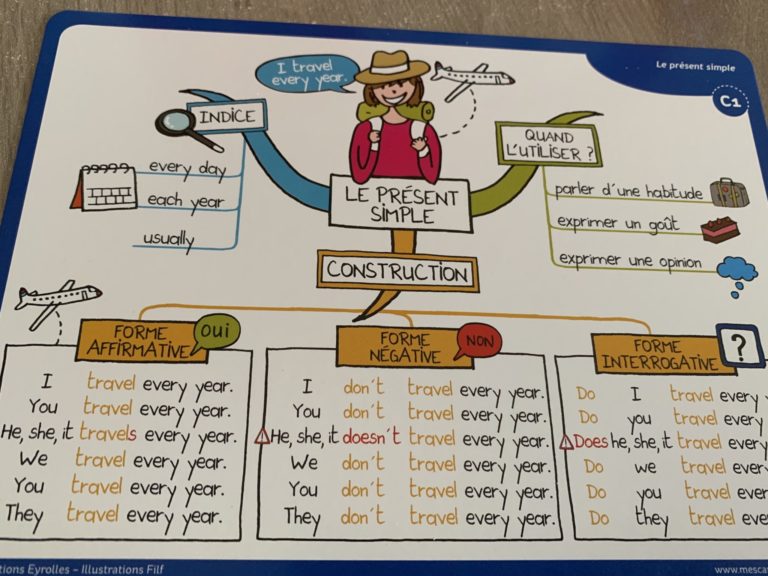 Le présent simple
C1
I travel
every year.
INDICE
every day
each year
usually
QUAND
L'UTILISER ?
parler d'une habitude
exprimer un goût
exprimer une opinion
LE PRÉSENT
SIMPLE
CONSTRUCTION
FORME
AFFIRMATIVE
OUI
I travel every year.
You travel every year.
He, she, it travels every year.
We travel every year.
You travel every year.
They travel every year.
FORME
NÉGATIVE
NON
I don't travel every year.
You don't travel every year.
He, she, it doesn't travel every year.
We don't travel every year.
You don't travel every year.
They don't travel every year.
FORME
INTERROGATIVE
?
Do I travel every
Do you travel every
Does he, she, it travel every
Do we travel every
Do you travel
Do they travel
Éditions Eyrolles – Illustrations Filf